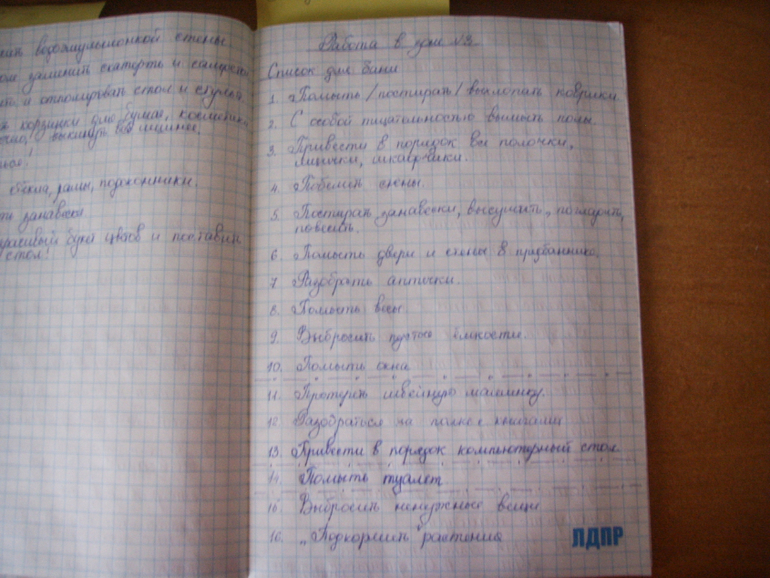 стены
скатерть и
и отполировать стол и стулья.
корзинки для бумаг,
выкинуть все лишнее.
стёкла, рамы, подоконники.
занавески
красивый букет цветов и поставить
стол!
Работа в доме №3
Список для бани
1. Помыть/постирать/выхлопать коврики.
2. С особой тщательностью вымыть полы.
3. Привести в порядок все полочки,
ящички, шкафчики.
4. Побелить стены.
5. Постирать занавески, высушить, погладить,
повесить.
6. Помыть двери и стены в предбаннике.
7. Разобрать аптечки.
8. Помыть весы.
9. Выбросить пустые ёмкости.
10. Помыть окна
11. Протереть швейную машинку.
12. Разобраться на полке с книгами
13. Привести в порядок компьютерный стол.
14. Помыть туалет
15. Выбросить ненужные вещи
16. „Подкормить" растения
ЛДПР